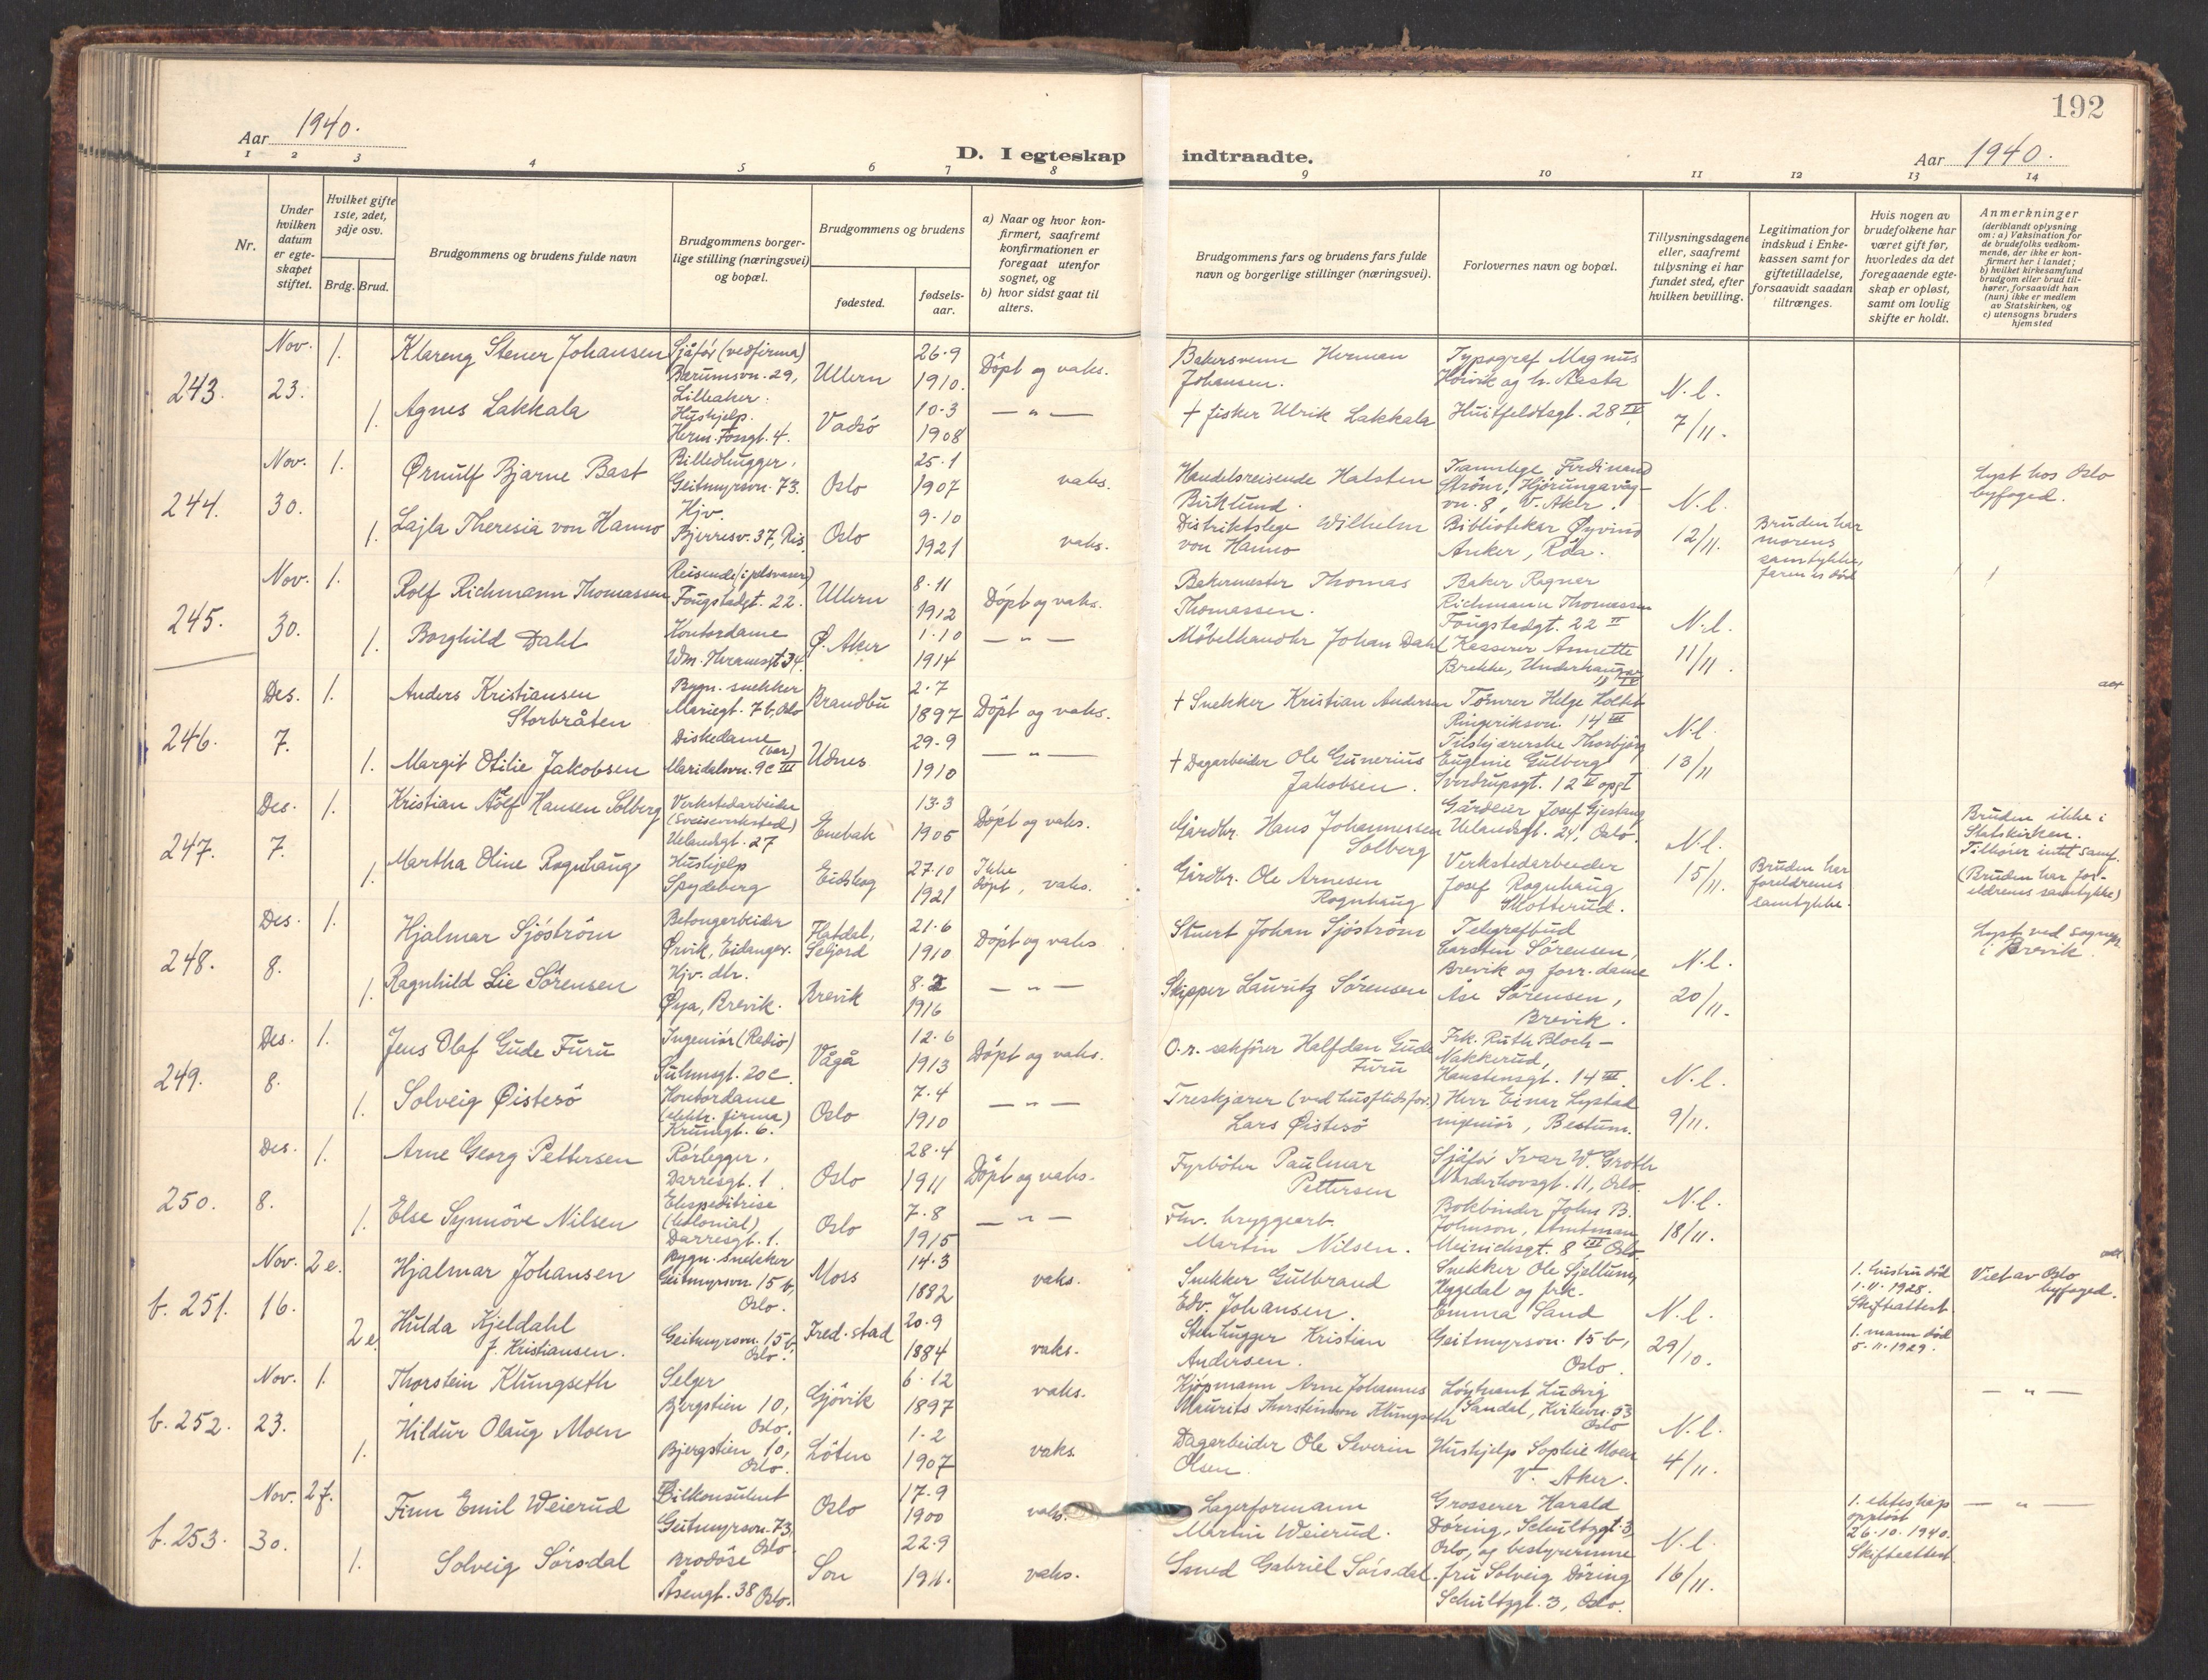 192
Aar 1940.
D. I egteskap indtraadte.
Aar 1940.
1 2 3 4 5 6 7 8 9 10 11 12 13 14
Nr.
Under hvilken datum er egteskapet stiftet.
Hvilket gifte 1ste, 2det, 3dje osv.
Brdg. Brud.
Brudgommens og brudens fulde navn
Brudgommens borgerlige stilling (næringsvei) og bopæl.
Brudgommens og brudens
fødested.
fødselsaar.
a) Naar og hvor konfirmert, saafremt konfirmationen er foregaat utenfor sognet, og
b) hvor sidst gaat til alters.
Brudgommens fars og brudens fars fulde navn og borgerlige stillinger (næringsvei).
Forlovernes navn og bopæl.
Tillysningsdagene eller, saafremt tillysning ei har fundet sted, efter hvilken bevilling.
Legitimation for indskud i Enkekassen samt for giftetilladelse, forsaavidt saadan tiltrænges.
Hvis nogen av brudefolkene har været gift før, hvorledes da det foregaaende egteskap er opløst, samt om lovlig skifte er holdt.
Anmerkninger
(deriblandt oplysning om: a) Vaksination for de brudefolks vedkommende, der ikke er konfirmert her i landet;
b) hvilket kirkesamfund brudgom eller brud tilhører, forsaavidt han (hun) ikke er medlem av Statskirken, og
c) utensogns bruders hjemsted
243. Nov. 23. 1. Klareng Stener Johansen
Sjåfør (vedfirma) Bærumsvn. 29, Lilleaker.
Ullern 26.9 1910. Döpt og vaks.
Bakersvenn Herman Johansen.
Typograf Magnus Hoivik og h. Aasta
Huitfeldtsgt. 28 IV,
N.l. 7/11.
1. Agnes Lakkala
Hushjelp. Herm. Fossgt. 4.
Vadsö 10.3 1908 — " —
† fisker Ulrik Lakkala
244. Nov. 30. 1. Ørnulf Bjarne Bast
Billedhugger, Geitmyrsvn. 73.
Oslo 25.1 1907 vaks.
Handelsreisende Halsten Birklund.
Tannlege Ferdinand Ström, Hjörungavågvn. 8, V. Aker.
N.l. 12/11.
Lyst hos Oslo byfoged.
1. Lajla Theresia von Hanno
Hjv. Bjerresv. 37, Ris.
Oslo 9.10 1921 vaks.
Distriktslege Wilhelm von Hanno
Bibliotekar Øyvind Anker, Röa.
Bruden har morens samtykke, faren er död
245. Nov. 30. 1. Rolf Richmann Thomassen
Reisende (i pelsvarer) Fougstadgt. 22.
Ullern 8.11 1912 Döpt og vaks.
Bakermester Thomas Thomassen.
Baker Ragnar Richmann Thomassen
Fougstadgt. 22 II
N.l. 11/11.
1. Borghild Dahl
Kontordame
Ø. Aker 1.10 1914 — " —
Möbelhandlr Johan Dahl
Kasserer Annette Brekke,
246. Des. 7. 1. Anders Kristiansen Storbråten
Bygn. snekker Mariegt. 7b, Oslo
Brandbu 2.7 1897 Döpt og vaks.
† Snekker Kristian Andersen
Tömrer Helge
Ringeriksvn. 14 III
N.l. 13/11
1. Margit Otilie Jakobsen
Diskedame (bar) Maridalsvn. 9c III
Udnes 29.9 1910 — " —
† Dagarbeider Ole Gunerius Jakobsen.
Tilskjærerske Thorbjörg Eugenie Gulberg
Sverdrupsgt. 12 V opg I
247. Des. 7. 1. Kristian Adolf Hansen Solberg
Verkstedarbeider (Sveiseverksted) Uelandsgt. 27
Enebak 13.3 1905 Döpt og vaks.
Gårdbr. Hans Johannessen Solberg
Gårdeier Josef Gjestang
Uelandsgt. 24, Oslo.
N.l. 15/11.
Bruden ikke i Statskirken. Tilhörer intet samf.
(Bruden har foreldrenes samtykke)
1. Martha Oline Rognhaug
Hushjelp Spydeberg
Eidskog 27.10 1921 Ikke döpt, vaks.
Gårdbr. Ole Arnesen Rognhaug
Verkstedarbeider Josef Rognhaug Skotterud.
Bruden har foreldrenes samtykke.
248. Des. 8. 1. Hjalmar Sjöström
Betongarbeider Ørvik, Eidanger.
Flatdal, Seljord 21.6 1910 Döpt og vaks
Stuert Johan Sjöström
Telegrafbud Carsten Sörensen, Brevik og forr. dame
Åse Sörensen, Brevik.
N.l. 20/11.
Lyst ved sognepr. i Brevik.
1. Ragnhild Lie Sörensen
Hjv. dtr. Øya, Brevik.
Brevik 8.2 1916 — " —
Skipper Lauritz Sörensen
249. Des. 8. 1. Jens Olaf Gude Furu
Ingeniör (Radio) Sulmsgt. 20c.
Vågå 12.6 1913 Döpt og vaks.
O.r. sakförer Halfdan Gude Furu
Frk. Ruth Bloch-Nakkerud, Hanstensgt. 14 III.
N.l. 9/11.
1. Solveig Øistesö
Kontordame (elektr. firma) Krumgt. 6.
Oslo 7.4 1910 — " —
Treskjærer (ved husflidsfor.) Lars Øistesö
Herr Einar Lystad ingeniör, Bestum.
250. Des. 8. 1. Arne Georg Pettersen
Rörlegger, Darresgt. 1.
Oslo 28.4 1911 Döpt og vaks.
Fyrböter Paulmar Pettersen
Sjåför Ivar W. Groth
Norderhovsgt. 11, Oslo.
N.l. 18/11.
1. Else Synnöve Nilsen
Ekspeditrise (kolonial) Darresgt. 1.
Oslo 7.8 1915 — " —
Fhv. bryggearb. Martin Nilsen.
Bokbinder John B. Johnson, Amtmann Meinichsgt. 8 III Oslo
b. 251. Nov. 16. 2 e. Hjalmar Johansen
Bygn. snekker Geitmyrsvn. 15 b, Oslo.
Moss 14.3 1882 vaks.
Snekker Gulbrand Edv. Johansen.
Snekker Ole Sjellum, Eggedal og frk. Emma Sand
Geitmyrsvn. 15 b, Oslo.
N.l. 29/10.
1. hustru död 1.11.1928. Skifteattest
Viet av Oslo byfoged.
2 e. Hulda Kjeldahl f. Kristiansen.
Geitmyrsvn. 15 b, Oslo.
Fred.stad 20.9 1884 vaks.
Stenhugger Kristian Andersen.
1. mann död 5.11.1929.
b. 252. Nov. 23. 1. Thorstein Klungseth
Selger Bjergstien 10, Oslo.
Gjövik 6.12 1897 vaks.
Kjöpmann Arne Johannes Maurits Thorsteinson Klungseth
Löytnant Ludvig Sandal, Kirkevn. 53 Oslo
N.l. 4/11.
— " —
1. Hildur Olaug Moen
Bjergstien 10, Oslo.
Löten 1.2 1907 vaks
Dagarbeider Ole Severin Olsen.
Hushjelp Sophie Moen V. Aker.
b. 253. Nov. 30. 2 f. Finn Emil Weierud
Bilkonsulent Geitmyrsvn. 73, Oslo.
Oslo 17.9 1900 vaks.
Lagerformann Martin Weierud.
Grosserer Harald Döring, Schultzgt. 3, Oslo, og bestyrerinne
fru Solveig Döring Schultzgt. 3, Oslo.
N.l. 16/11.
1. ekteskap opplöst 26.10.1940. Skifteattest
— " —
1. Solveig Sörsdal
Brodöse Åsengt. 38 Oslo.
Son 22.9 1911. vaks.
Smed Gabriel Sörsdal.